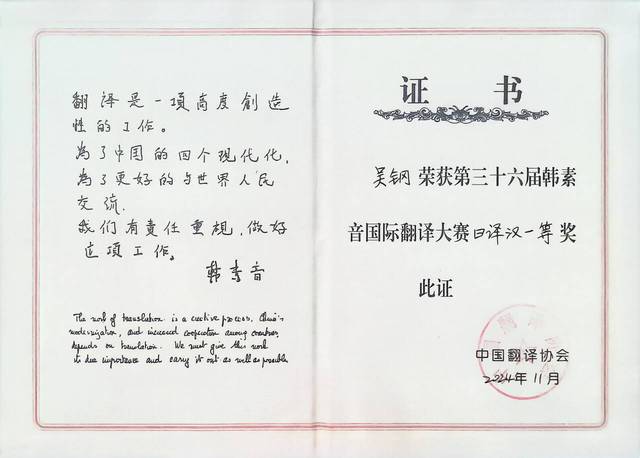 翻译是一項高度創造
性的工作。
為了中国的四个现代化，
為了更好的与世界人民
交流，
我们有責任重視，做好
这項工作。
韩素音
The work of translation is a creative process. China's
modernization, and increased cooperation among countries
depends on translation. We must give this work
its due importance and carry it out as well as possible
证书
吴钢 荣获第三十六届韩素
音国际翻译大赛日译汉一等奖
此证
中国翻译协会
2024年11月